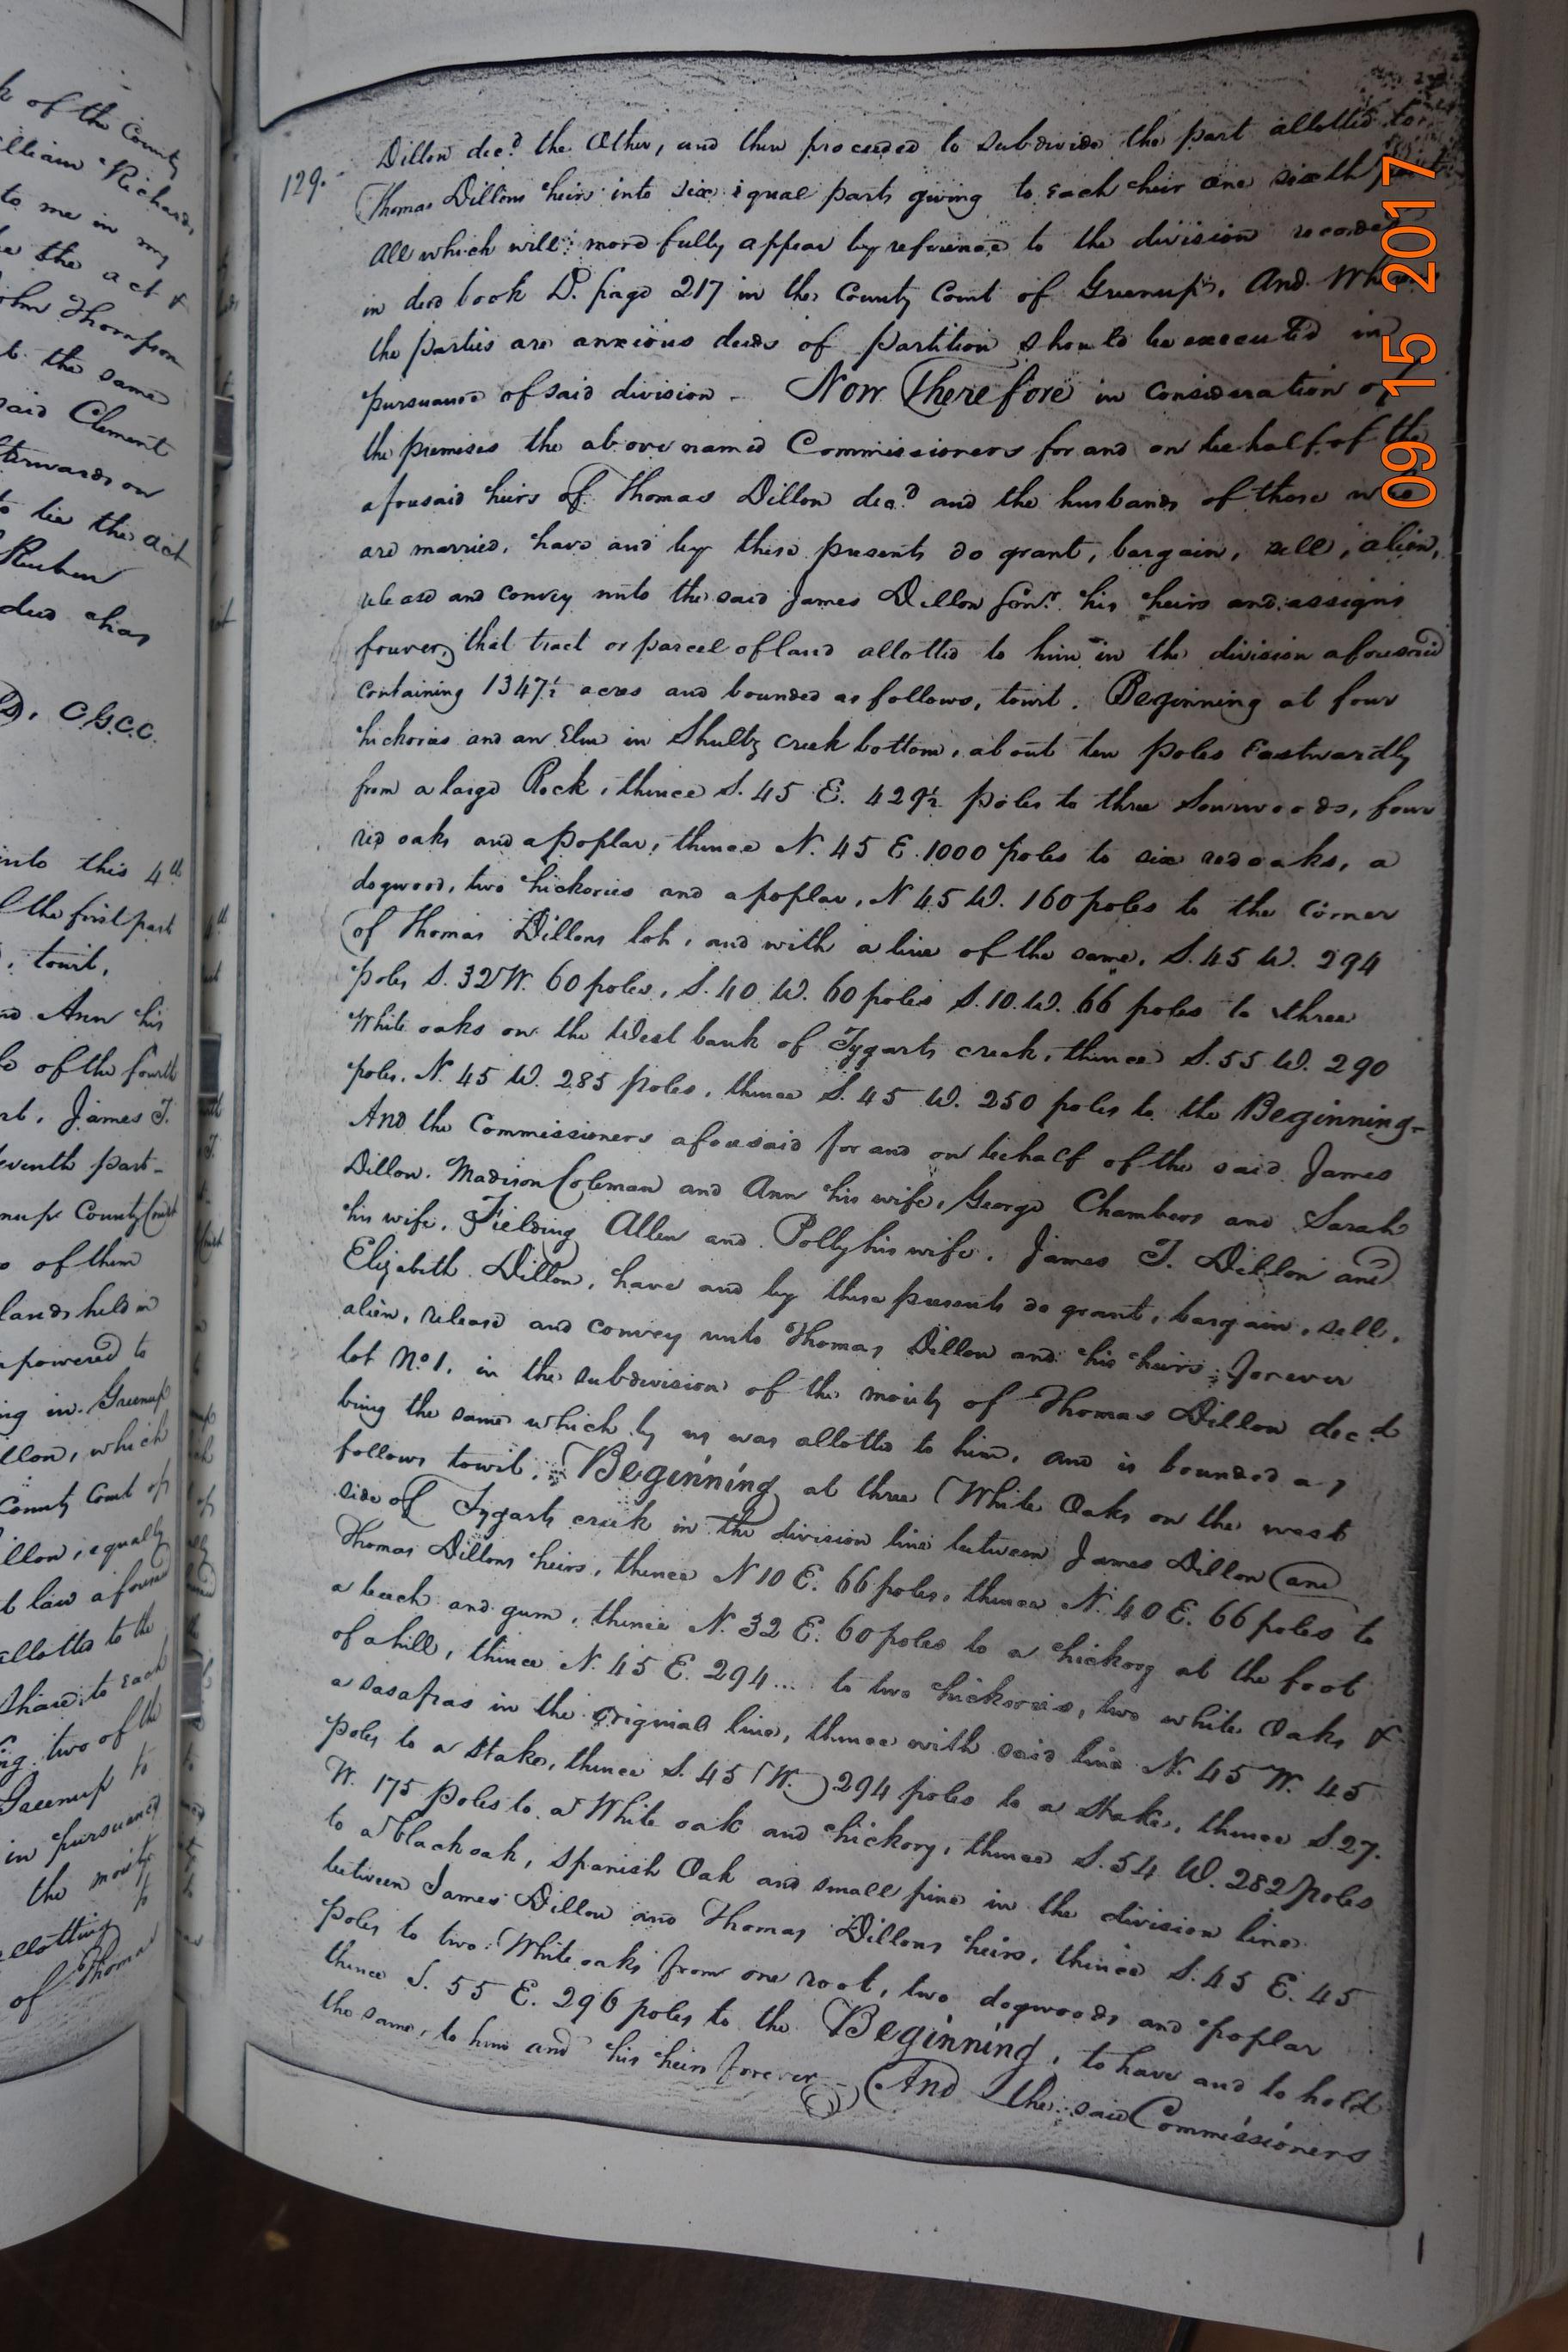 k of the County
illiam Richards
to me in my
be the act &
John Thompson
t the same
said Clement
fterwards on
to be the act
Reuben
deed has
D, C.G.C.C.
into this 4th
the first part
, towit,
Ann his
of the fourth
rt, James T.
eventh part-
nup County Court
of them
lands held in
mpowered to
ing in Greenup
illon, which
County Court of
illon, equally
t law afores
allotted to the
Share to each
ing two of the
Greenup to
in pursuance
the moity
allotting to
of Thomas
129.
Dillon decd. the Other, and then proceeded to subdivide the part allotted to
Thomas Dillons heirs into six equal parts giving to each heir one sixth part
All which will more fully appear by reference to the division recorded
in deed book D. page 217 in the County Court of Greenup. And Whereas
the parties are anxious deeds of partition should be executed in
pursuance of said division - Now Therefore in consideration of
the premises the above named Commissioners for and on behalf of the
aforesaid heirs of Thomas Dillon decd and the husbands of those who
are married, have and by these presents do grant, bargain, sell, alien,
release and convey unto the said James Dillon Senr. his heirs and assigns
forever, that tract or parcel of land allotted to him in the division aforesaid
containing 1347½ acres and bounded as follows, towit. Beginning at four
hickories and an Elm in Shultz creek bottom, about ten poles Eastwardly
from a large Rock, thence S. 45 E. 429½ poles to three Sourwoods, four
red oaks and a poplar, thence N. 45 E. 1000 poles to six red oaks, a
dogwood, two hickories and a poplar, N 45 W. 160 poles to the corner
of Thomas Dillons lot, and with a line of the same, S. 45 W. 294
poles S. 32 W. 60 poles, S. 40 W. 60 poles S. 10. W. 66 poles to three
White oaks on the West bank of Tygarts creek, thence S. 55 W. 290
poles, N. 45 W. 285 poles, thence S. 45 W. 250 poles to the Beginning-
And the Commissioners aforesaid for and on behalf of the said James
Dillon. Madison Coleman and Ann his wife, George Chambers and Sarah
his wife, Fielding Allen and Polly his wife, James T. Dillon and
Elizabeth Dillon, have and by these presents do grant, bargain, sell,
alien, release and convey unto Thomas Dillon and his heirs forever
lot No 1. in the subdivision of the moity of Thomas Dillon decd
being the same which by us was allotted to him, and is bounded as
follows towit, Beginning at three White Oaks on the west
side of Tygarts creek in the division line between James Dillon and
Thomas Dillons heirs, thence N 10 E. 66 poles, thence N. 40 E. 66 poles to
a beech and gum, thence N. 32 E. 60 poles to a hickory at the foot
of a hill, thence N. 45 E. 294... to two hickories, two white Oaks &
a sasafras in the original line, thence with said line N. 45 W. 45
poles to a stake, thence S. 45 (W.) 294 poles to a stake, thence S. 27.
W. 175 poles to a White oak and hickory, thence S. 54 W. 282 poles
to a black oak, Spanish Oak and small pine in the division line
between James Dillon and Thomas Dillons heirs, thence S. 45 E. 45
poles to two White oaks from one root, two dogwoods and poplar
thence S. 55 E. 296 poles to the Beginning, to have and to hold
the same, to him and his heirs forever And the said Commissioners
09 15 2017